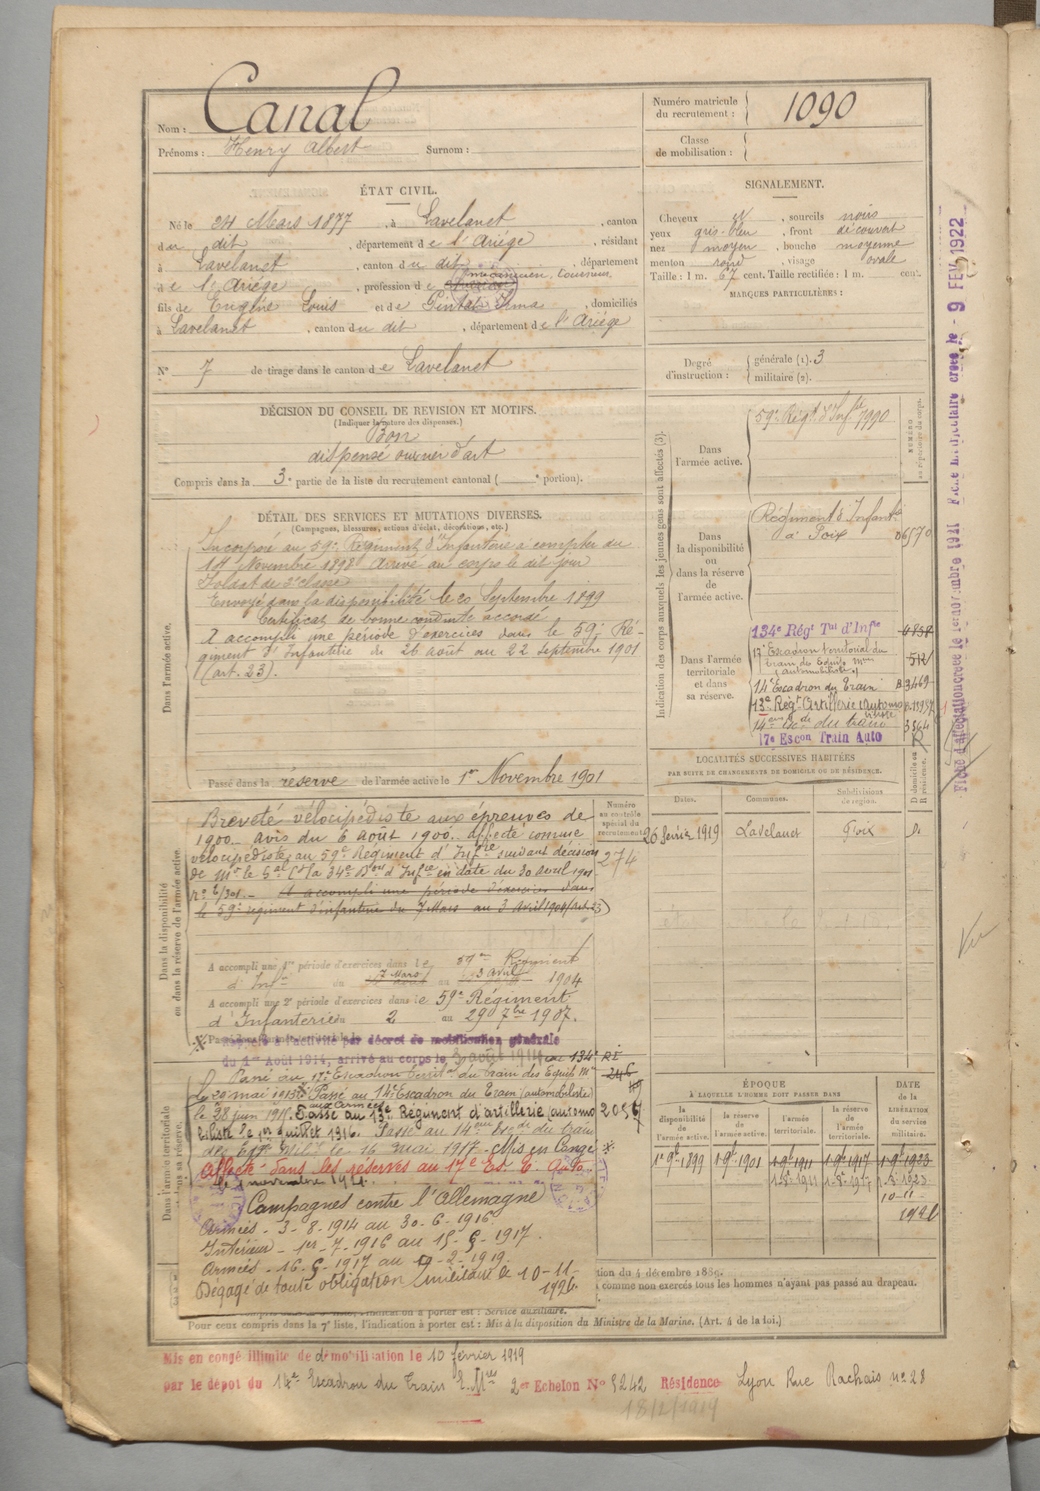 Nom : Canal
Prénoms : Henry Albert Surnom :
Numéro matricule du recrutement : 1090
Classe de mobilisation :
ÉTAT CIVIL.
Né le 24 Mars 1877, à Lavelanet, canton
du dit, département de l'Ariège, résidant
à Lavelanet, canton du dit, département
de l'Ariège, profession de mécanicien, tourneur
fils de Eugène Louis et de Irma, domiciliés
à Lavelanet, canton du dit, département de l'Ariège
N° 7 de tirage dans le canton de Lavelanet
SIGNALEMENT.
Cheveux et, sourcils noirs
yeux gris-bleu, front découvert
nez moyen, bouche moyenne
menton rond, visage ovale
Taille : 1 m. 67 cent. Taille rectifiée : 1 m. cent.
MARQUES PARTICULIÈRES :
Degré d'instruction : générale (1). 3
militaire (2).
DÉCISION DU CONSEIL DE REVISION ET MOTIFS.
(Indiquer la nature des dispenses.)
Bon
dispensé ouvrier d'art
Compris dans la 3e partie de la liste du recrutement cantonal ( e portion).
DÉTAIL DES SERVICES ET MUTATIONS DIVERSES.
(Campagnes, blessures, actions d'éclat, décorations, etc.)
Dans l'armée active.
Incorporé au 59e Régiment d'Infanterie à compter du
1er Novembre 1898 Arrivé au corps le dit jour
Soldat de 2e classe
Envoyé dans la disponibilité le 20 Septembre 1899
Certificat de bonne conduite accordé
A accompli une période d'exercices dans le 59e Ré-
giment d'Infanterie du 26 août au 22 Septembre 1901
(art. 23).
Passé dans la réserve de l'armée active le 1er Novembre 1901
Dans la disponibilité ou dans la réserve de l'armée active.
Breveté vélocipédiste aux épreuves de
1900. avis du 6 août 1900. Affecté comme
vélocipédiste au 59e Régiment d'Infrie suivant décision
de Mr le Gal Ct la 34e Don d'Infie en date du 30 avril 1901
A accompli une période d'exercices dans
le 59e régiment d'infanterie du 7 Mars au 3 Avril 1904 (Art 23)
Numéro au contrôle spécial du recrutement
274
A accompli une 1re période d'exercices dans le 59me Régiment
d'Infie du 7 Mars au 3 avril 1904
A accompli une 2e période d'exercices dans le 59e Régiment
d'Infanterie du 2 au 29 7bre 1907.
Rappelé à l'activité par décret de mobilisation générale
du 1er Août 1914, arrivé au corps le 3 août 1914 134e RI
Dans l'armée territoriale et dans sa réserve.
Passé au 17e Escadron territal du train des Equip. Mre
le 20 mai 1915 Passé au 14e Escadron du Train (automobiliste)
le 28 juin 1915. aux Armées Passé au 13e Régiment d'artillerie (automo
biliste) le 1er juillet 1916. Passé au 14eme Esc. du train
le 16 mai 1917. Mis en Congé
Affecté dans les réserves au 17e Es. T. Auto.
le 1 novembre 1921.
246
Campagnes contre l'Allemagne
Armées - 3-8-1914 au 30-6-1916
Intérieur - 1er-7-1916 au 15-5-1917.
Armées - 16-5-1917 au 9-2-1919.
Dégagé de toute obligation militaire le 10-11-
1926.
Indication des corps auxquels les jeunes gens sont affectés (3).
NUMÉRO au répertoire du corps.
Dans l'armée active.
59e Régt d'Infie 7990
Dans la disponibilité ou dans la réserve de l'armée active.
Régiment d'Infantie
à Foix
Dans l'armée territoriale et dans sa réserve.
134e Régt Tal d'Infie 4838
17e Escadron territorial du
train des Equip. Mres 512
(automobiliste)
14e Escadron du Train B 3469
13e Régt Artillerie automo
biliste
14eme Esc. du train 3564
17e Escon Train Auto
LOCALITÉS SUCCESSIVES HABITÉES
PAR SUITE DE CHANGEMENTS DE DOMICILE OU DE RÉSIDENCE.
D domicile ou R résidence.
Dates. Communes. Subdivisions de région.
26 février 1919 Lavelanet Foix D.
ÉPOQUE
À LAQUELLE L'HOMME DOIT PASSER DANS
la disponibilité de l'armée active. la réserve de l'armée active. l'armée territoriale. la réserve de l'armée territoriale.
DATE de la LIBÉRATION du service militaire.
1er 9b 1899 1 9b 1901 1 9b 1911 1 9b 1917 1 9b 1923
10-11-
1926
tion du 4 décembre 1889.
comme non exercés tous les hommes n'ayant pas passé au drapeau.
l'indication à porter est : Service auxiliaire.
Pour ceux compris dans la 7e liste, l'indication à porter est : Mis à la disposition du Ministre de la Marine. (Art. 4 de la loi.)
Mis en congé illimité de démobilisation le 10 février 1919
par le dépôt du 14e Escadron du Train E. Mres 2er Echelon N° 5242 Résidence Lyon Rue Rachais no 28
18/2/1919
Fiche d'affectation créée le 1er novembre 1921 Fiche matriculaire créée le - 9 FEV 1922
Vu